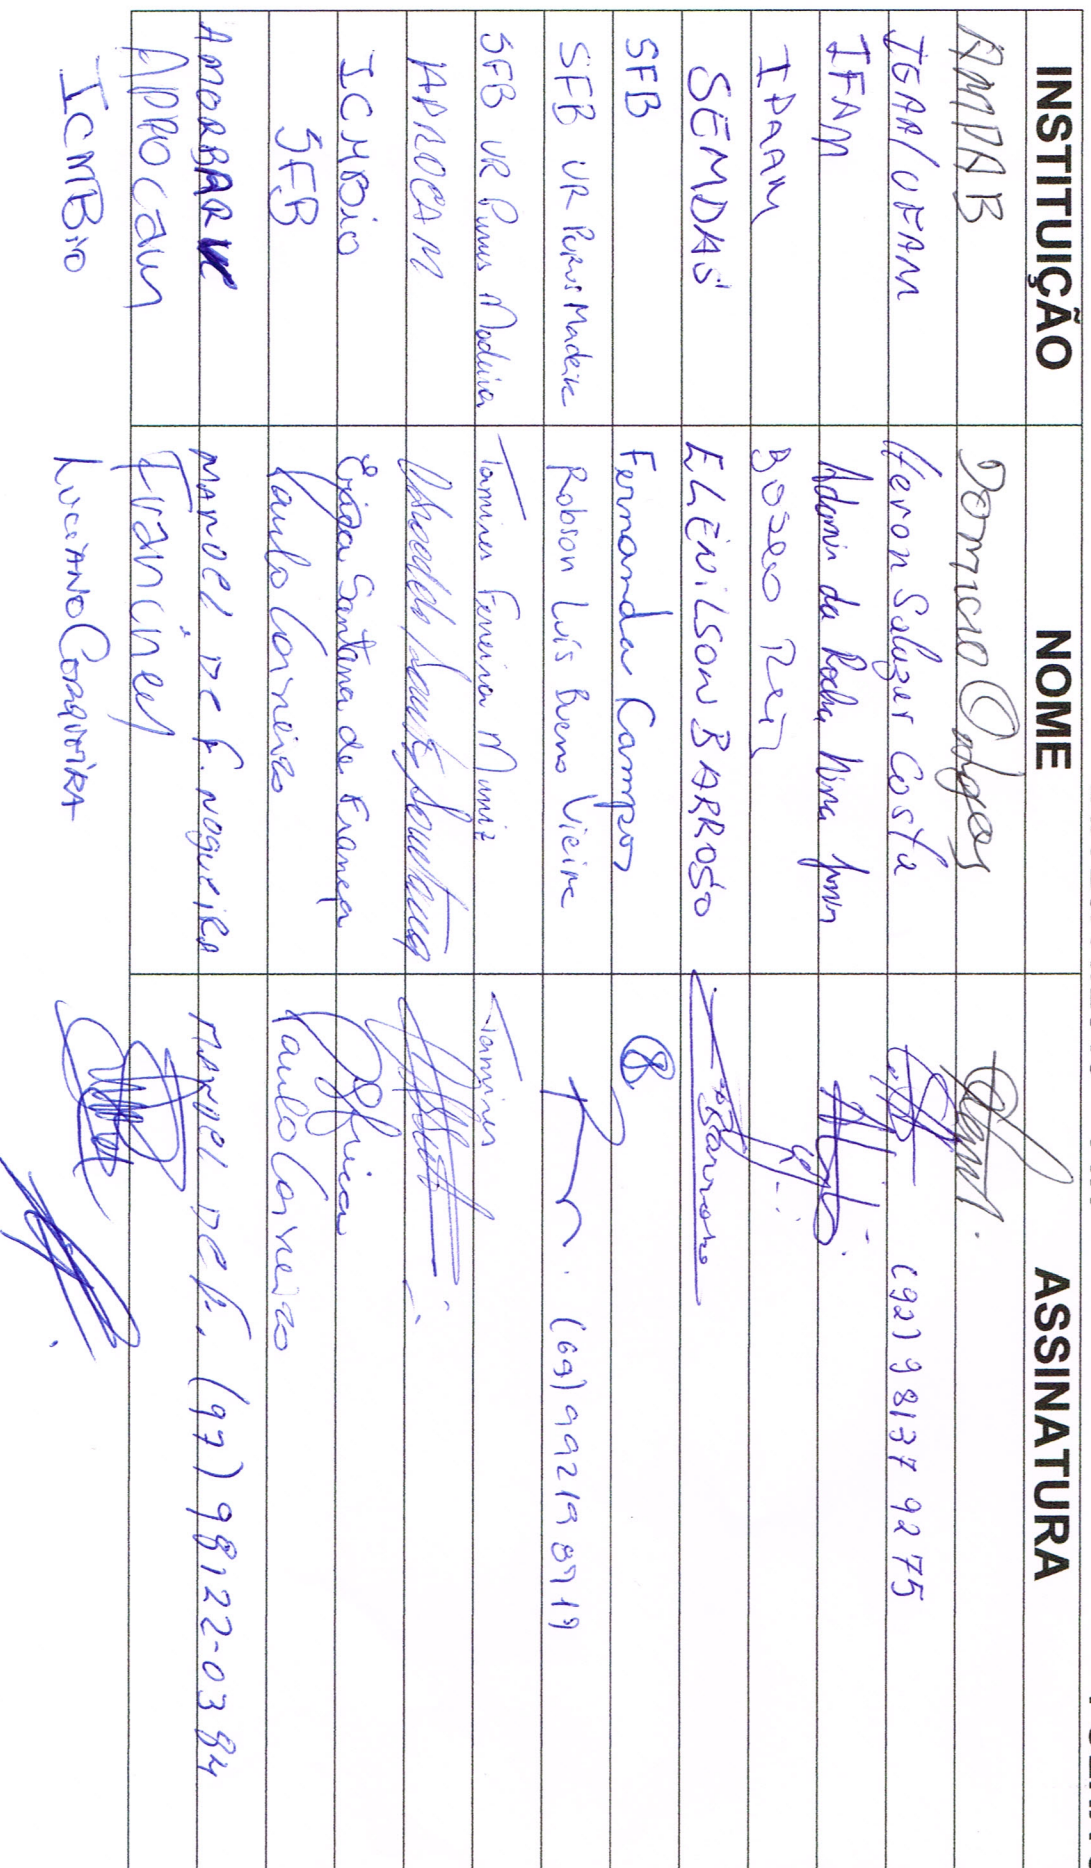 INSTITUIÇÃO NOME ASSINATURA
AMPAB Domicio
IEAA/UFAM Heron Salazar Costa (92) 98137 9275
IFAM Adamir da Rocha Nina Junior
IPAAM Bosco
SEMDAS ELENILSON BARROSO EBarroso
SFB Fernanda Campos
SFB UR Purus Madeira Robson Luís Bueno Vieira (69) 992198719
SFB UR Purus Madeira Tamires Ferreira Muniz Tamires
APROCAM
ICMBio Érica Santana de França
SFB Paulo Carneiro Paulo Carneiro
AMORBARK MANOEL DE F. NOGUEIRA MANOEL DE F. (97) 98122-0384
APROCAM Francinei
ICMBio LUCIANO CORQUEIRA